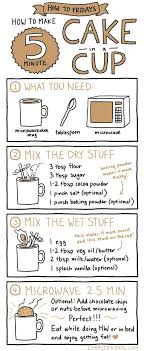 HOW TO FRIDAYS
HOW TO MAKE
5
MINUTE
CAKE
in a
CUP
1 WHAT YOU NEED:
microwaveable
mug
tablespoon
microwave
2 MIX THE DRY STUFF
3 tbsp flour
3 tbsp sugar
1-2 tbsp cocoa powder
1 pinch salt (optional)
1 pinch baking powder (optional)
baking powder
makes it more
3 MIX THE WET STUFF
this makes it more moist
and less stuck on the cup!
1 egg
1-2 tbsp veg oil/butter
2 tbsp milk/water (optional)
1 splash vanilla (optional)
4 MICROWAVE 2.5 MIN.
Optional: Add chocolate chips
or nuts before microwaving
Perfect!!!
Eat while doing HW or in bed
and enjoy getting fat!